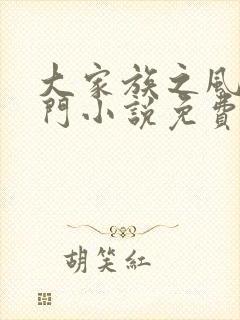 大家族之風
門小説免費
胡笑紅